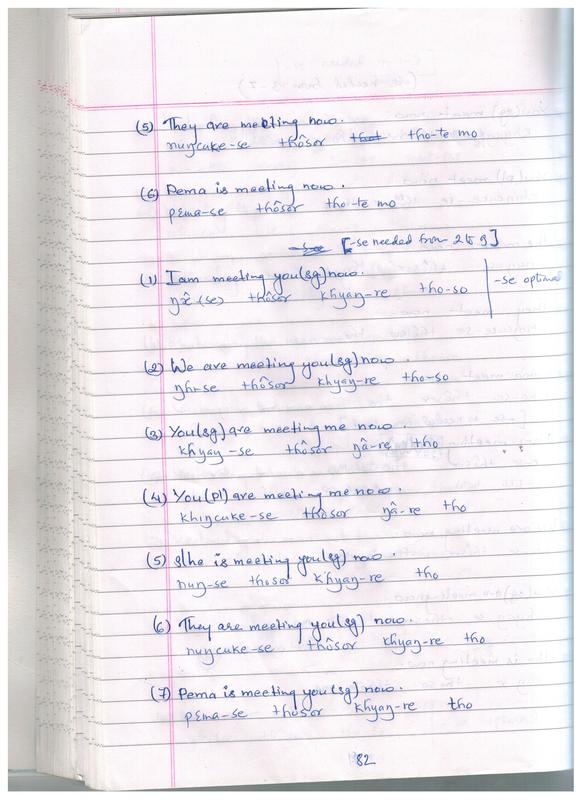 (5) They are meeting now.
nuŋcuke-se thôsor thot tho-te mo
(6) Pema is meeting now.
pɛma-se thôsor tho-te mo
[-se needed from 2 to 9]
(1) I am meeting you(sg) now. -se optional
ŋâ (se) thôsor khyaŋ-re tho-so
(2) We are meeting you(sg) now.
ŋhi-se thôsor khyaŋ-re tho-so
(3) You(sg) are meeting me now.
khyaŋ-se thôsor ŋâ-re tho
(4) You(pl) are meeting me now.
khiŋcuke-se thôsor ŋâ-re tho
(5) s/he is meeting you(sg) now.
nuŋ-se thosor khyaŋ-re tho
(6) They are meeting you(sg) now.
nuŋcuke-se thôsor khyaŋ-re tho
(7) Pema is meeting you(sg) now.
pɛma-se thôsor khyaŋ-re tho
82